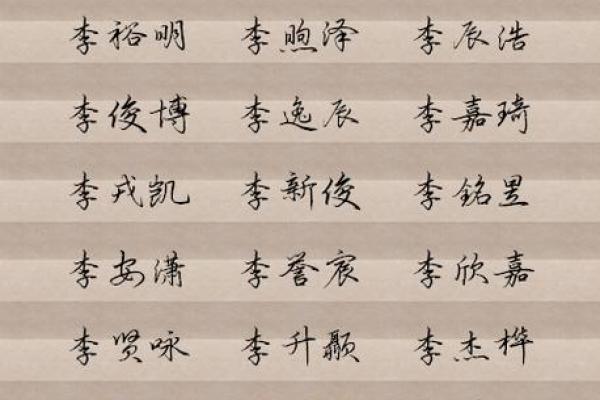 李裕明 李煦泽 李辰浩
李俊博 李逸辰 李嘉琦
李戎凯 李新俊 李铭昱
李安潇 李誉宸 李欣嘉
李贤咏 李升颢 李杰桦